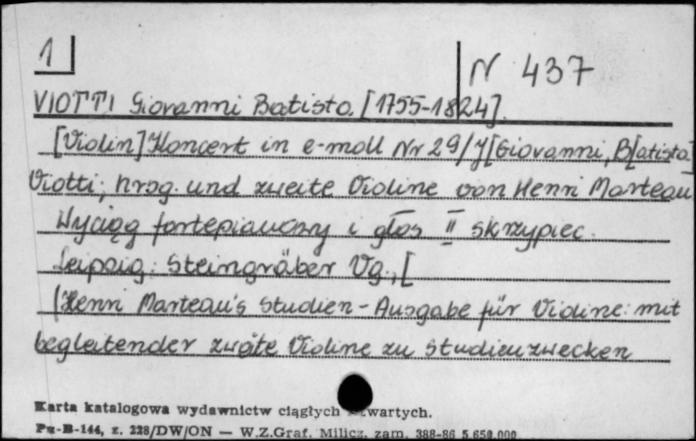 1
N 437
VIOTTI Giovanni Batisto. [1755-1824]
[Violin] Koncert in e-moll Nr 29/J[Giovanni, B[atista]
Viotti; hrsg. und zweite Violine von Henri Marteau
Wyciąg fortepianowy i głos II skrzypiec.
Leipzig: Steingräber Vg., [
(Henri Marteau's Studien-Ausgabe für Violine: mit
begleitender zweite Violine zu Studienzwecken
Karta katalogowa wydawnictw ciągłych zwartych.
Pu-B-144, z. 228/DW/ON — W.Z.Graf. Milicz, zam. 388-86 5.650.000